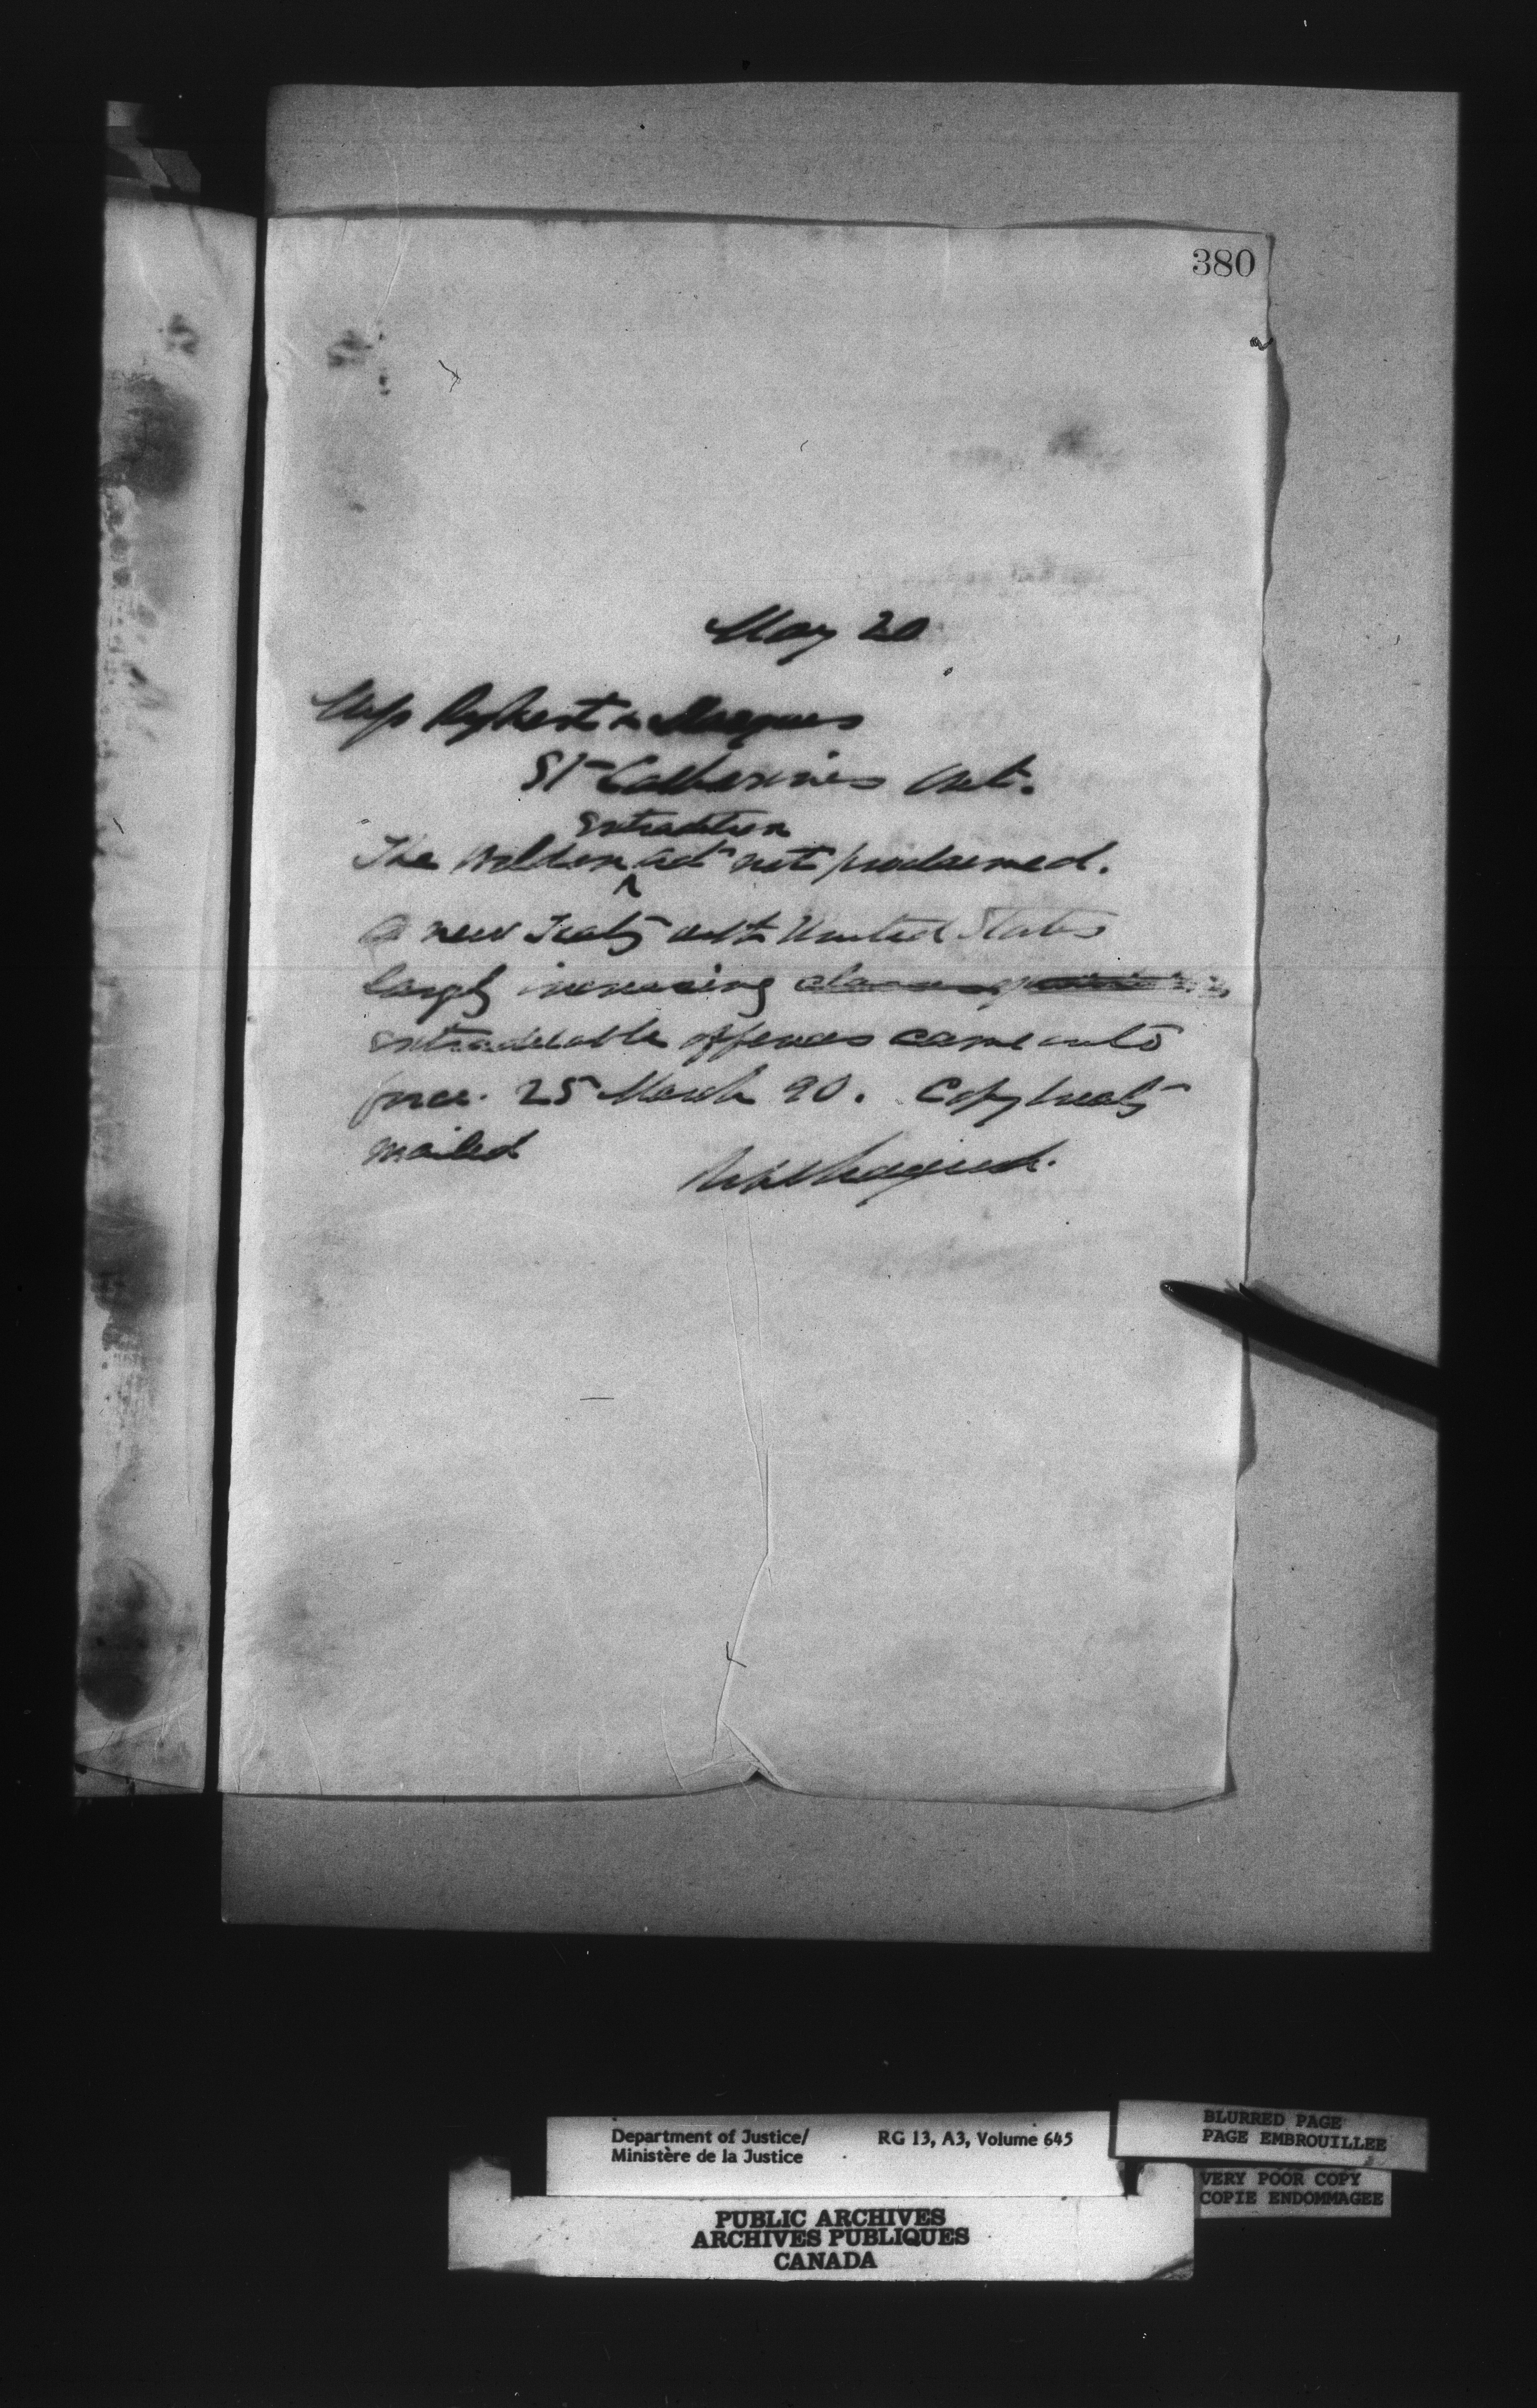 380
May 20
Rykert &
St Catharines Ont.
extradition
The Weldon act not proclaimed.
A new Treaty with United States
largely increasing
extraditable offences came into
force 25 March 90. Copy treaty
mailed
Department of Justice/
Ministère de la Justice
RG 13, A3, Volume 645
BLURRED PAGE
PAGE EMBROUILLEE
VERY POOR COPY
COPIE ENDOMMAGEE
PUBLIC ARCHIVES
ARCHIVES PUBLIQUES
CANADA